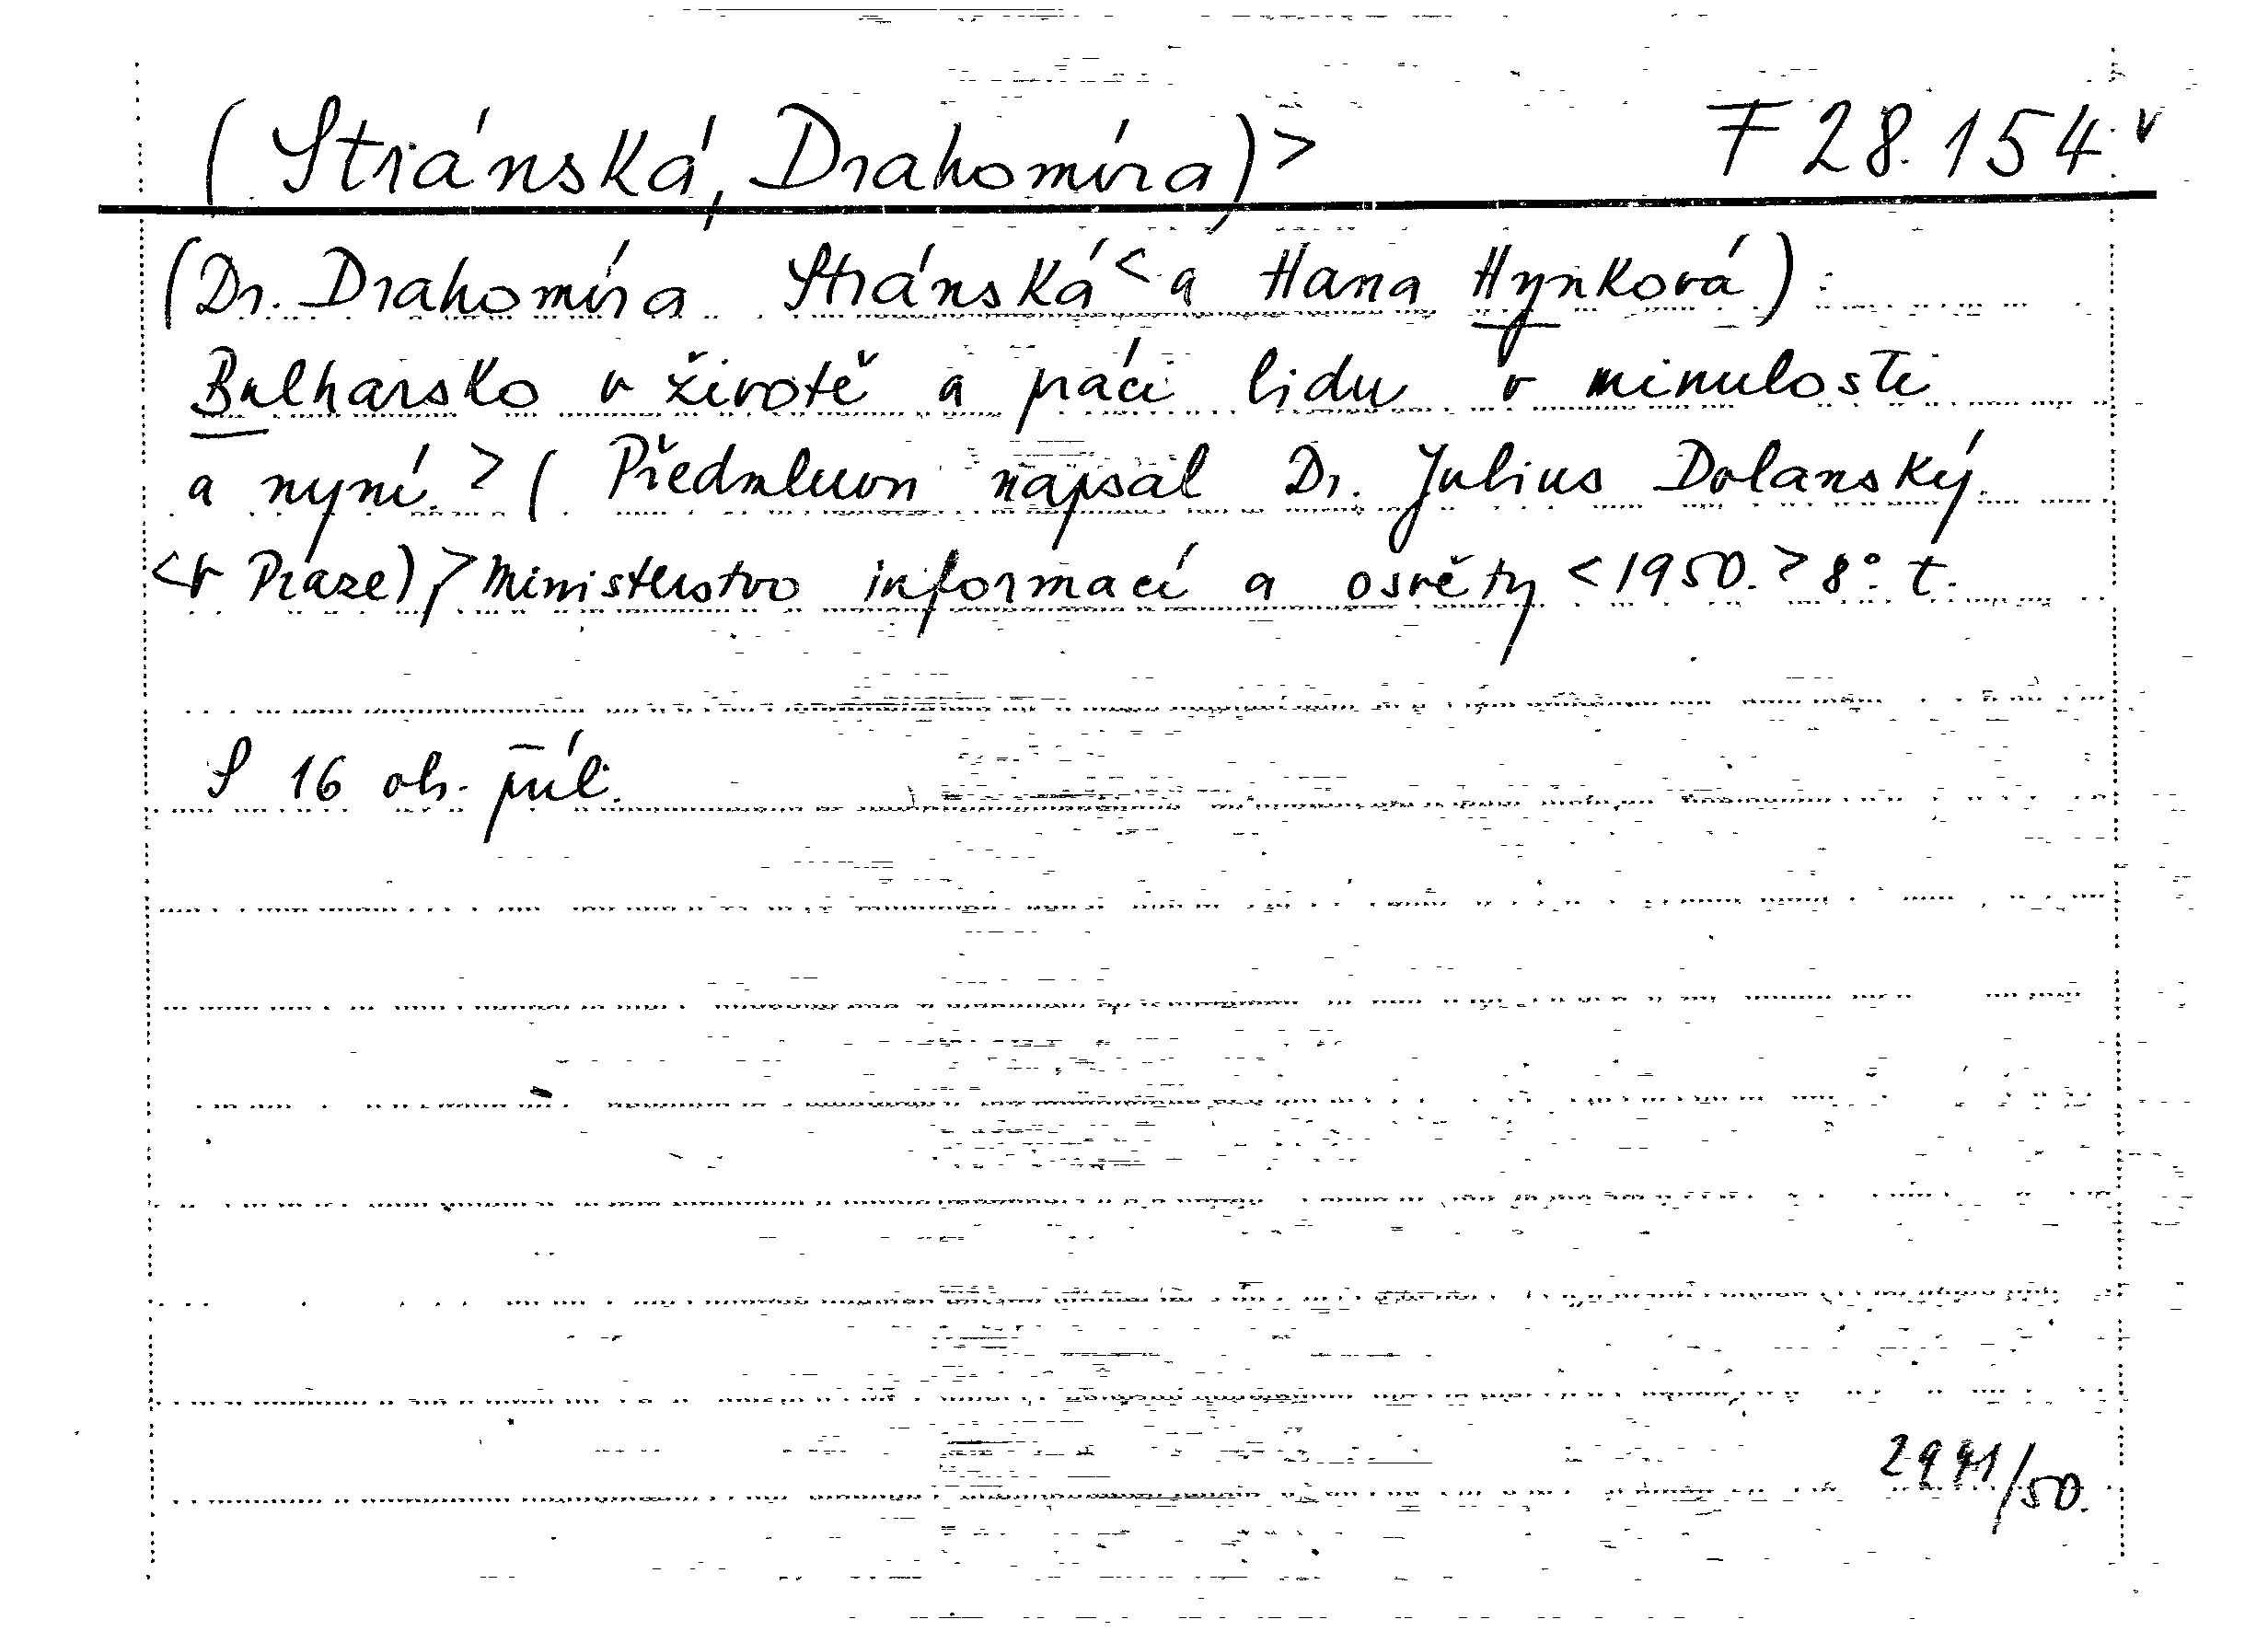 (Stránská, Drahomíra)> F 28.154 v
(Dr. Drahomíra Stránská < a Hana Hynková):
Bulharsko v životě a práci lidu v minulosti
a nyní. > (Předmluvu napsal Dr. Julius Dolanský
<V Praze), > Ministerstvo informací a osvěty <1950. > 8°. t.
S 16 obr. příl.
2941/50.